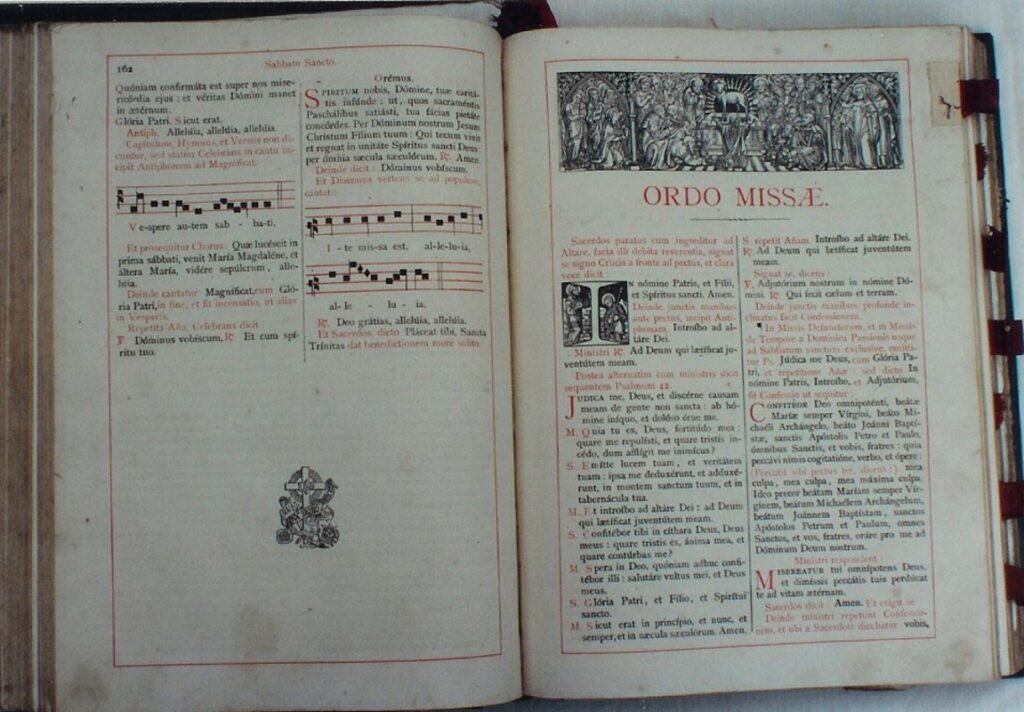 162
Sabbato Sancto.
Quóniam confirmáta est super nos mise-
ricórdia ejus : et véritas Dómini manet
in ætérnum.
Glória Patri. Sicut erat.
Antiph. Allelúia, allelúia, allelúia.
Capitulum, Hymnus, et Versus non di-
cuntur, sed statim Celebrans in cantu in-
cipit Antiphonam ad Magnificat.
Ve-spere au-tem sab - ba-ti,
Et prosequitur Chorus : Quæ lucéscit in
prima sábbati, venit María Magdaléne, et
áltera María, vidére sepúlcrum, alle-
lúia.
Deinde cantatur Magnificat, cum Gló-
ria Patri, in fine, et fit incensatio, ut alias
in Vesperis.
Repetita Aña, Celebrans dicit
℣. Dóminus vobíscum. ℟. Et cum spí-
ritu tuo.
Orémus.
SPIRITUM nobis, Dómine, tuæ caritá-
tis infúnde : ut, quos sacraméntis
Paschálibus satiásti, tua fácias pietáte
concórdes. Per Dóminum nostrum Jesum
Christum Fílium tuum : Qui tecum vivit
et regnat in unitáte Spíritus sancti Deus :
per ómnia sæcula sæculórum. ℟. Amen.
Deinde dicit : Dóminus vobíscum.
Et Diaconus vertens se ad populum,
cantat :
I - te mis-sa est, al-le-lu-ia,
al-le - lu - ia.
℟. Deo grátias, allelúia, allelúia.
Et Sacerdos, dicto Pláceat tibi, Sancta
Trínitas dat benedictionem more solito.
ORDO MISSÆ.
Sacerdos paratus cum ingreditur ad
Altare, facta illi debita reverentia, signat
se signo Crucis a fronte ad pectus, et clara
voce dicit :
IN nómine Patris, et Fílii,
et Spíritus sancti. Amen.
Deinde junctis manibus
ante pectus, incipit Anti-
phonam. Introíbo ad al-
táre Dei.
Ministri ℟. Ad Deum qui lætíficat ju-
ventútem meam.
Postea alternatim cum ministris dicit
sequentem Psalmum 42.
JUDICA me, Deus, et discérne causam
meam de gente non sancta : ab hó-
mine iníquo, et dolóso érue me.
M. Quia tu es, Deus, fortitúdo mea :
quare me repulísti, et quare tristis in-
cédo, dum afflígit me inimícus ?
S. Emítte lucem tuam, et veritátem
tuam : ipsa me deduxérunt, et adduxé-
runt, in montem sanctum tuum, et in
tabernácula tua.
M. Et introíbo ad altáre Dei : ad Deum
qui lætíficat juventútem meam.
S. Confitébor tibi in cíthara Deus, Deus
meus : quare tristis es, ánima mea, et
quare contúrbas me ?
M. Spera in Deo, quóniam adhuc confi-
tébor illi : salutáre vultus mei, et Deus
meus.
S. Glória Patri, et Fílio, et Spirítui
sancto.
M. Sicut erat in princípio, et nunc, et
semper, et in sæcula sæculórum. Amen.
S. repetit Añam. Introíbo ad altáre Dei.
℟. Ad Deum qui lætíficat juventútem
meam.
Signat se, dicens :
℣. Adjutórium nostrum in nómine Dó-
mini. ℟. Qui fecit cœlum et terram.
Deinde junctis manibus, profunde in-
clinatus facit Confessionem.
¶ In Missis Defunctorum, et in Missis
de Tempore a Dominica Passionis usque
ad Sabbatum sanctum exclusive, omitti-
tur Ps. Júdica me Deus, cum Glória Pa-
tri, et repetitione Añæ : sed dicto In
nómine Patris, Introíbo, et Adjutórium,
fit Confessio ut sequitur :
CONFITEOR Deo omnipoténti, beátæ
Maríæ semper Vírgini, beáto Mi-
chaéli Archángelo, beáto Joánni Baptí-
stæ, sanctis Apóstolis Petro et Paulo,
ómnibus Sanctis, et vobis, fratres : quia
peccávi nimis cogitatióne, verbo, et ópere :
(Percutit sibi pectus ter, dicens :) mea
culpa, mea culpa, mea máxima culpa.
Ideo precor beátam Maríam semper Vír-
ginem, beátum Michaélem Archángelum,
beátum Joánnem Baptístam, sanctos
Apóstolos Petrum et Paulum, omnes
Sanctos, et vos, fratres, oráre pro me ad
Dóminum Deum nostrum.
Ministri respondent :
MISEREATUR tui omnípotens Deus,
et dimíssis peccátis tuis perdúcat
te ad vitam ætérnam.
Sacerdos dicit : Amen. Et erigit se
Deinde ministri repetunt Confessio-
nem, et ubi a Sacerdote dicebatur vobis,